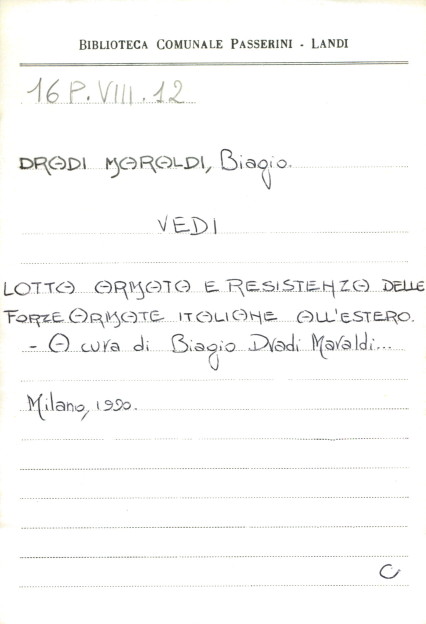 BIBLIOTECA COMUNALE PASSERINI - LANDI
16 P.VIII.12
DRADI MARALDI, Biagio.
VEDI
LOTTA ARMATA E RESISTENZA DELLE
FORZE ARMATE ITALIANE ALL'ESTERO.
- A cura di Biagio Dradi Maraldi...
Milano, 1990.
C